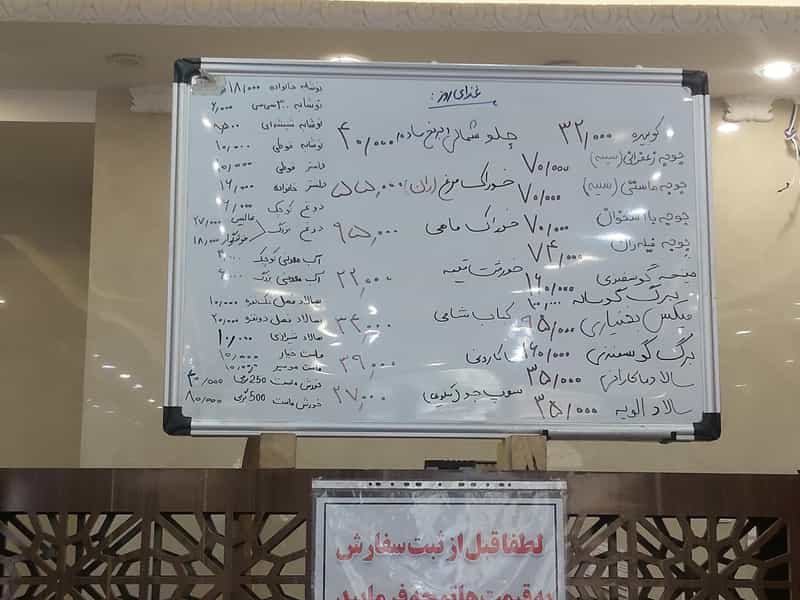 غذای روز:
کوبیده ۳۲,۰۰۰
جوجه زعفرانی (سینه) ۷۰,۰۰۰
جوجه ماستی (سینه) ۷۰,۰۰۰
جوجه با استخوان ۷۰,۰۰۰
جوجه فیله ران ۷۴,۰۰۰
گوسفندی ۱۶۰,۰۰۰
برگ گوساله
میکس بختیاری ۹۵,۰۰۰
برگ گوسفندی ۱۶۰,۰۰۰
سالاد ماکارانی ۳۵,۰۰۰
سالاد الویه ۳۵,۰۰۰
چلو شمالی ۴۰,۰۰۰
خوراک مرغ (ران) ۵۵,۰۰۰
خوراک ماهی ۹۵,۰۰۰
خورشت قیمه ۲۲,۰۰۰
کباب شامی ۳۴,۰۰۰
ماکارونی ۳۹,۰۰۰
سوپ جو ۲۷,۰۰۰
نوشابه خانواده ۱۸,۰۰۰
نوشابه ۳۰۰ سی سی
نوشابه شیشه‌ای
نوشابه قوطی ۱۰,۰۰۰
دلستر قوطی ۱۰,۰۰۰
دلستر خانواده ۱۶,۰۰۰
دوغ کوچک ۶,۰۰۰
دوغ بزرگ عالیس ۲۷,۰۰۰
خوشگوار ۱۸,۰۰۰
آب معدنی کوچک
آب معدنی بزرگ
سالاد فصل تک نفره ۱۰,۰۰۰
سالاد فصل دو نفره ۲۰,۰۰۰
سالاد شیرازی ۱۰,۰۰۰
ماست خیار ۱۰,۰۰۰
ماست موسیر ۱۰,۰۰۰
خورش ماست 250 گرمی ۴۰,۰۰۰
خورش ماست 500 گرمی ۸۰,۰۰۰
لطفا قبل از ثبت سفارش
به قیمت ها توجه فرمایید